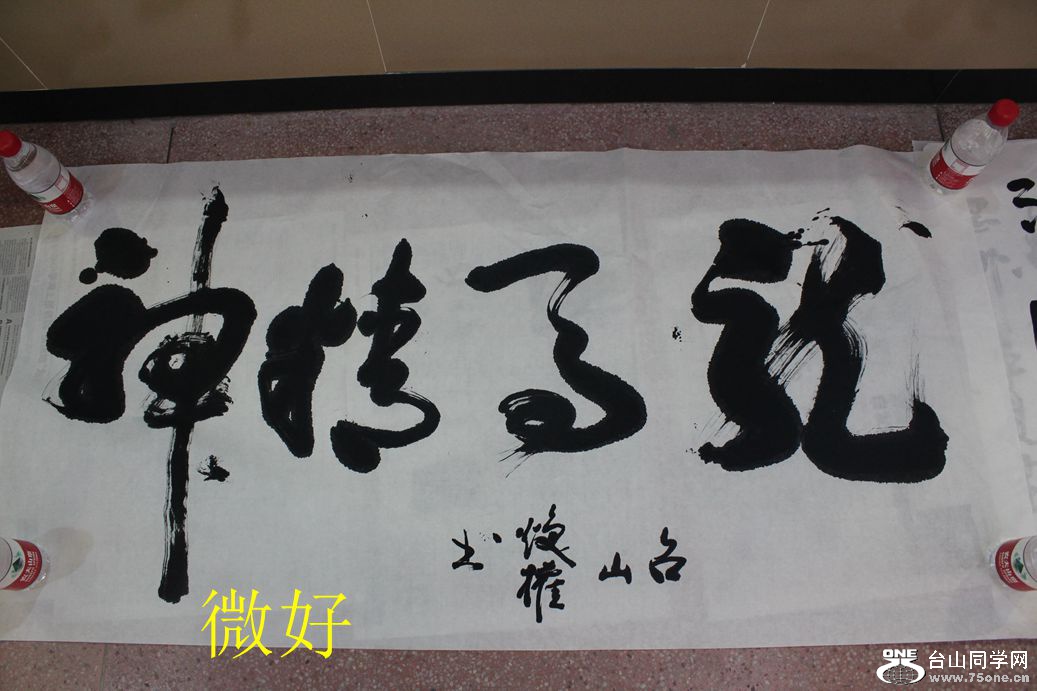 龙马精神
台山
焕权
书
微好
ONE
台山同学网
www.75one.cn